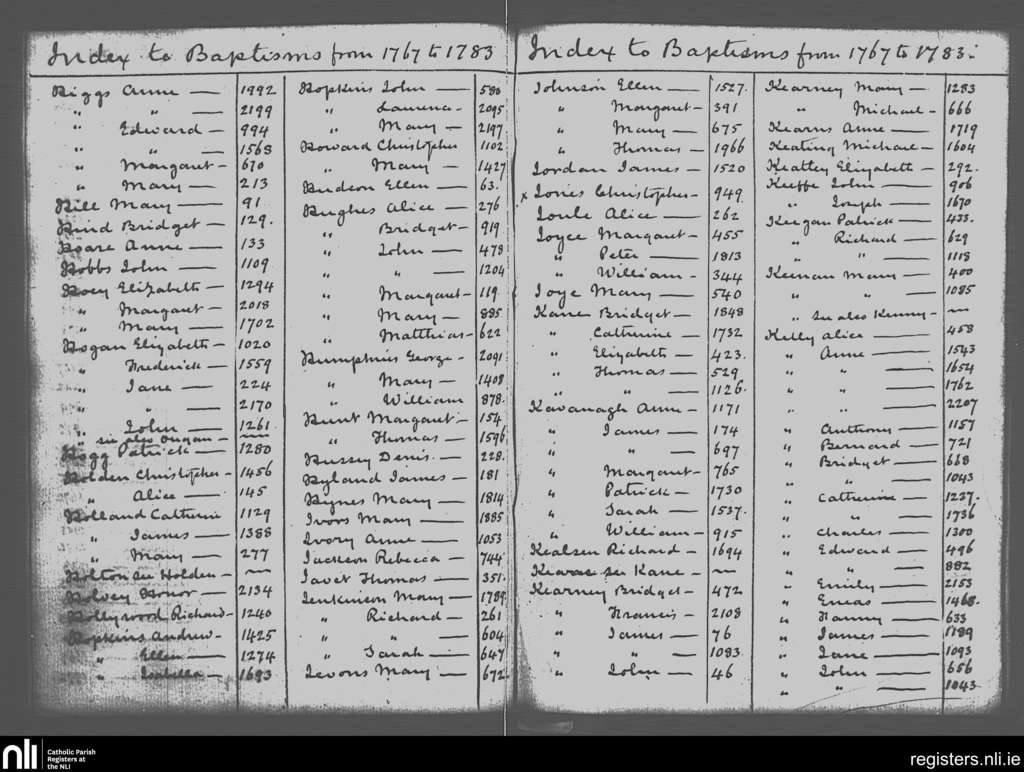 Index to Baptisms from 1767 to 1783
Higgs Anne — 1992
" " — 2199
" Edward — 994
" " — 1568
" Margaret — 670
" Mary — 213
Hill Mary — 91
Hind Bridget — 129.
Hoare Anne — 133
Hobbs John — 1109
Hoey Elizabeth — 1294
" Margaret — 2018
" Mary — 1702
Hogan Elizabeth — 1020
" Frederick — 1559
" Jane — 224
" " — 2170
" John — 1261
" see also —
Hogg Patrick — 1280
Holden Christopher — 1456
" Alice — 145
Holland Catherine 1129
" James — 1388
" Mary — 277
Holton see Holden —
Holvey Honor — 2134
Hollywood Richard — 1240
Hopkins Andrew — 1425
" Ellen — 1274
" Isabella — 1693
Hopkins John — 580
" Laurence — 2095
" Mary — 2197
Howard Christopher 1102
" Mary — 1427
Hudson Ellen — 63.
Hughes Alice — 276
" Bridget — 919
" John — 478
" " — 1204
" Margaret — 119
" Mary — 885
" Matthias — 622
Humphries George — 2091
" Mary — 1408
" William 878.
Hunt Margaret — 154
" Thomas — 1596
Hussey Denis — 228.
Hyland James — 181
Hynes Mary — 1814
Ivors Mary — 1885
Ivory Anne — 1053
Jackson Rebecca — 744
Javet Thomas — 351.
Jenkinson Mary — 1789
" Richard — 261
" " — 604
" Sarah — 647
Jevons Mary — 672
Index to Baptisms from 1767 to 1783.
Johnson Ellen — 1527.
" Margaret — 391
" Mary — 675
" Thomas — 1966
Jordan James — 1520
x Jones Christopher — 949
Joule Alice — 262
Joyce Margaret — 455
" Peter — 1813
" William — 344
Joye Mary — 540
Kane Bridget — 1848
" Catherine — 1732
" Elizabeth — 423.
" Thomas — 529
" " — 1126.
Kavanagh Anne — 1171
" James — 174
" " — 697
" Margaret — 765
" Patrick — 1730
" Sarah — 1537.
" William — 915
Kealsen Richard — 1694
see Kane —
Kearney Bridget — 472
" Francis — 2108
" James — 76
" " — 1083
" John — 46
Kearney Mary — 1283
" Michael — 666
Kearns Anne — 1719
Keating Michael — 1604
Keatley Elizabeth — 292.
Keeffe John — 906
" Joseph — 1670
Keegan Patrick — 433.
" Richard — 629
" " — 1118
Keenan Mary — 400
" " — 1085
" see also Kenny —
Kelly Alice — 458
" Anne — 1543
" " — 1654
" " — 1762
" " — 2207
" Anthony — 1157
" Bernard — 721
" Bridget — 668
" " — 1043
" Catherine — 1237.
" " — 1736
" Charles — 1300
" Edward — 496
" " — 882
" Emily — 2153
" Eneas — 1468.
" Fanny — 633
" James — 1189
" Jane — 1093
" John — 656
" " — 1043
nli
Catholic Parish
Registers at
the NLI
registers.nli.ie